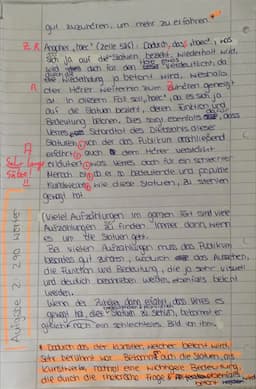 gut zuzuhören, um mehr zu erfahren.
Z.R. Anapher „haec" (Zeile 5&6). Dadurch, dass „haec", was
sich ja auf die Statuen bezieht, wiederholt wird,
wird dies auch für den verdeutlicht, da
die Wiederholung ja betont wird, weshalb
R der Hörer weiterhin zum Zuhören geneigt
ist. In diesem Fall soll „haec", da es sich ja
auf die Statuen bezieht, deren Funktion und
Bedeutung betonen. Dies zeigt ebenfalls, dass
Verres Schandtat des Diebstahls dieser
Statuen, von der das Publikum anschließend
erfährt, auch dem Hörer verdeutlicht
erläutert, was Verres doch für ein schlechter
Mensch ist, da er so bedeutende und populäre
Kunstwerke, wie diese Statuen, zu stehlen
gewagt hat.
A
Sehr lange
Sätze!
!!
Viele Aufzählungen im ganzen Text sind viele
Aufzählungen zu finden, immer dann, wenn
es um die Statuen geht.
Bei vielen Aufzählungen muss das Publikum
besonders gut zuhören, wodurch das Aussehen,
die Funktion und Bedeutung, die ja sehr visuell
und deutlich beschrieben werden, ebenfalls betont
werden.
Wenn der Zuhörer dann erfährt, dass Verres es
gewagt hat, diese Statuen zu stehlen, bekommt er
gleich noch ein schlechteres Bild von ihm.
Aufgabe 2: 290 Wörter
* Dadurch das der Künstler, welcher bekannt wird
sehr berühmt war. Bekommen auch die Statuen, als
Kunstwerke nochmal eine wichtigere Bedeutung,
die durch die rhetorische Frage ebenfalls
betont werden.